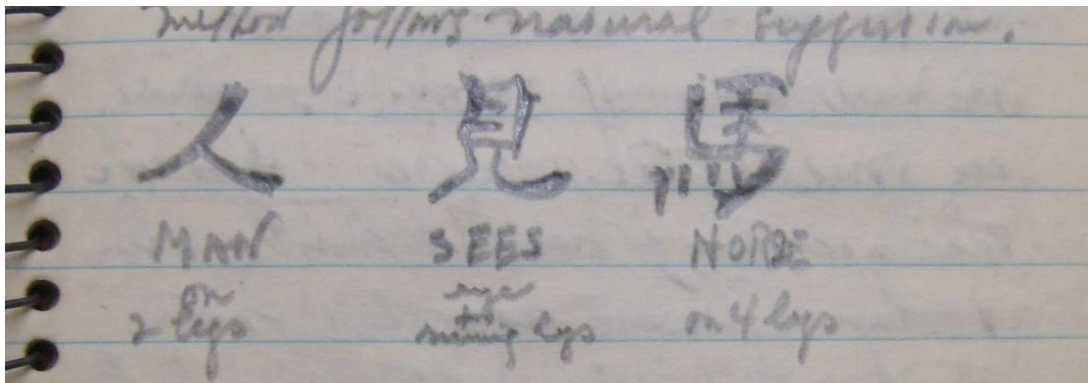 method follows natural suggestion.
人 見 馬
MAN SEES HORSE
on eye on
2 legs running legs on 4 legs